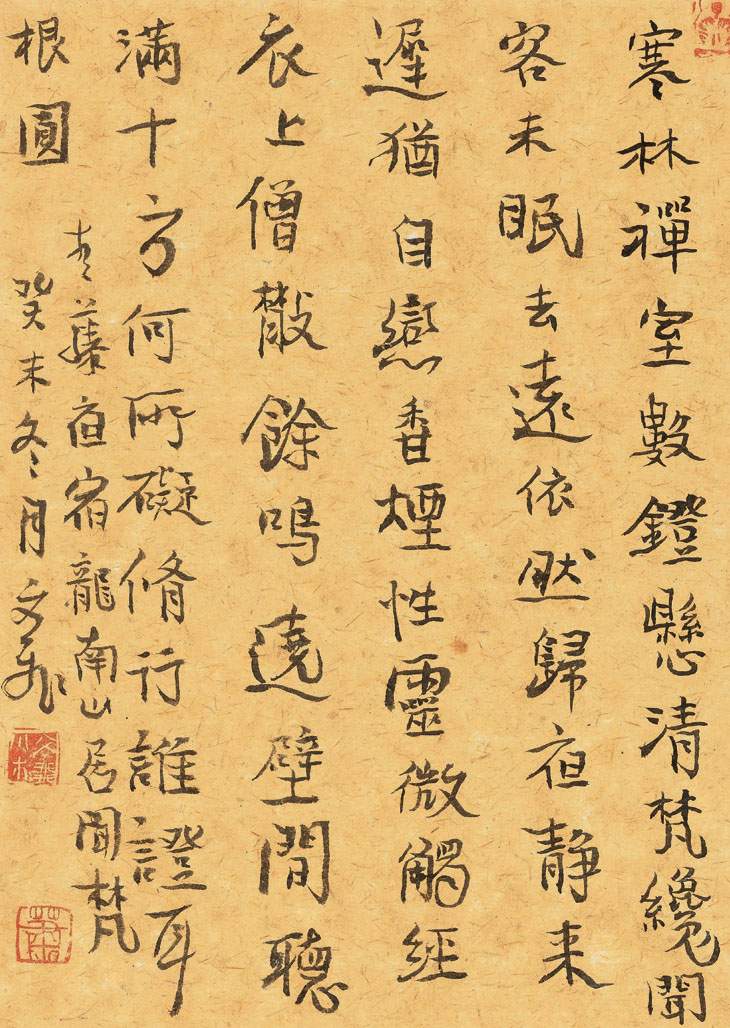 寒林禪室數鐙懸清梵纔聞
客未眠去遠依然歸夜静来
遲猶自戀香煙性靈微觸經
衣上僧散餘鳴遶壁間聽
滿十方何所礙脩行誰證耳
根圓
夜宿龍南山居聞梵
癸未冬月文